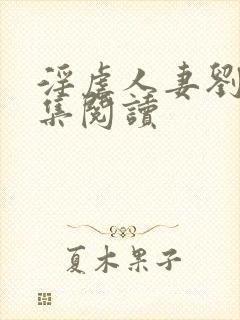 淫虐人妻劉
集閱讀
夏木果子